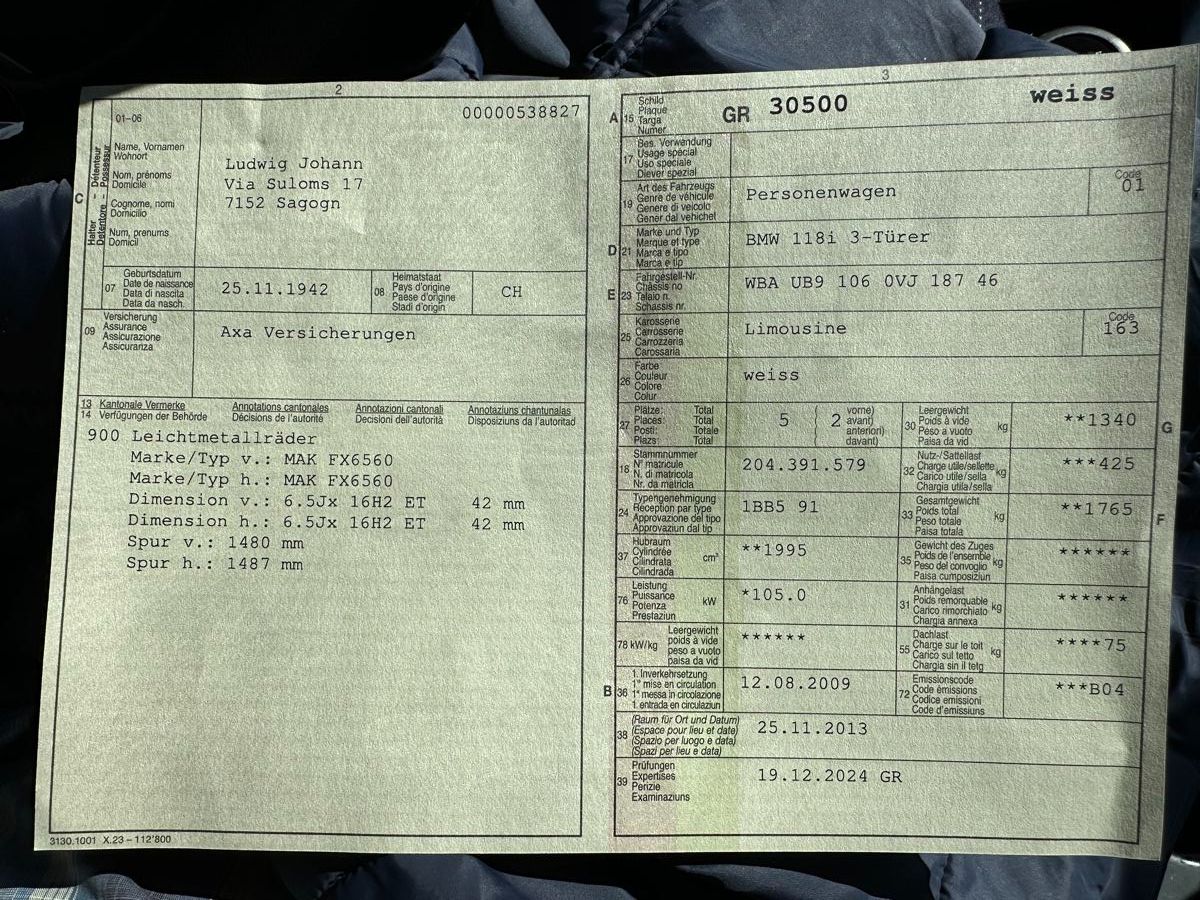 2
00000538827
01-06
C
Halter - Détenteur
Detentore - Possessur
Name, Vornamen
Wohnort
Nom, prénoms
Domicile
Cognome, nomi
Domicilio
Num, prenums
Domicil
Ludwig Johann
Via Suloms 17
7152 Sagogn
07
Geburtsdatum
Date de naissance
Data di nascita
Data da nasch.
25.11.1942
08
Heimatstaat
Pays d'origine
Paese d'origine
Stadi d'origin
CH
09
Versicherung
Assurance
Assicurazione
Assicuranza
Axa Versicherungen
13 Kantonale Vermerke Annotations cantonales Annotazioni cantonali Annotaziuns chantunalas
14 Verfügungen der Behörde Décisions de l'autorité Decisioni dell'autorità Disposiziuns da l'autoritad
900 Leichtmetallräder
Marke/Typ v.: MAK FX6560
Marke/Typ h.: MAK FX6560
Dimension v.: 6.5Jx 16H2 ET 42 mm
Dimension h.: 6.5Jx 16H2 ET 42 mm
Spur v.: 1480 mm
Spur h.: 1487 mm
3130.1001 X.23 – 112'800
3
A 15
Schild
Plaque
Targa
Numer
GR 30500 weiss
17
Bes. Verwendung
Usage spécial
Uso speciale
Diever spezial
19
Art des Fahrzeugs
Genre de véhicule
Genere di veicolo
Gener dal vehichel
Personenwagen
Code
01
D 21
Marke und Typ
Marque et type
Marca e tipo
Marca e tip
BMW 118i 3-Türer
E 23
Fahrgestell-Nr.
Châssis no
Telaio n.
Schassis nr.
WBA UB9 106 0VJ 187 46
25
Karosserie
Carrosserie
Carrozzeria
Carossaria
Limousine
Code
163
26
Farbe
Couleur
Colore
Colur
weiss
27
Plätze: Total
Places: Total
Posti: Totale
Plazs: Total
5 ( 2
vorne)
avant)
anteriori)
davant)
30
Leergewicht
Poids à vide
Peso a vuoto
Paisa da vid
kg
**1340
G
18
Stammnummer
N° matricule
N. di matricola
Nr. da matricla
204.391.579
32
Nutz-/Sattellast
Charge utile/sellette
Carico utile/sella
Chargia utila/sella
kg
***425
24
Typengenehmigung
Réception par type
Approvazione del tipo
Approvaziun dal tip
1BB5 91
33
Gesamtgewicht
Poids total
Peso totale
Paisa totala
kg
**1765
F
37
Hubraum
Cylindrée
Cilindrata
Cilindrada
cm³
**1995
35
Gewicht des Zuges
Poids de l'ensemble
Peso del convoglio
Paisa cumposiziun
kg
******
76
Leistung
Puissance
Potenza
Prestaziun
kW
*105.0
31
Anhängelast
Poids remorquable
Carico rimorchiato
Chargia annexa
kg
******
78 kW/kg
Leergewicht
poids à vide
peso a vuoto
paisa da vid
******
55
Dachlast
Charge sur le toit
Carico sul tetto
Chargia sin il tetg
kg
****75
B 36
1. Inverkehrsetzung
1re mise en circulation
1a messa in circolazione
1. entrada en circulaziun
12.08.2009
72
Emissionscode
Code émissions
Codice emissioni
Code d'emissiuns
***B04
38
(Raum für Ort und Datum)
(Espace pour lieu et date)
(Spazio per luogo e data)
(Spazi per lieu e data)
25.11.2013
39
Prüfungen
Expertises
Perizie
Examinaziuns
19.12.2024 GR